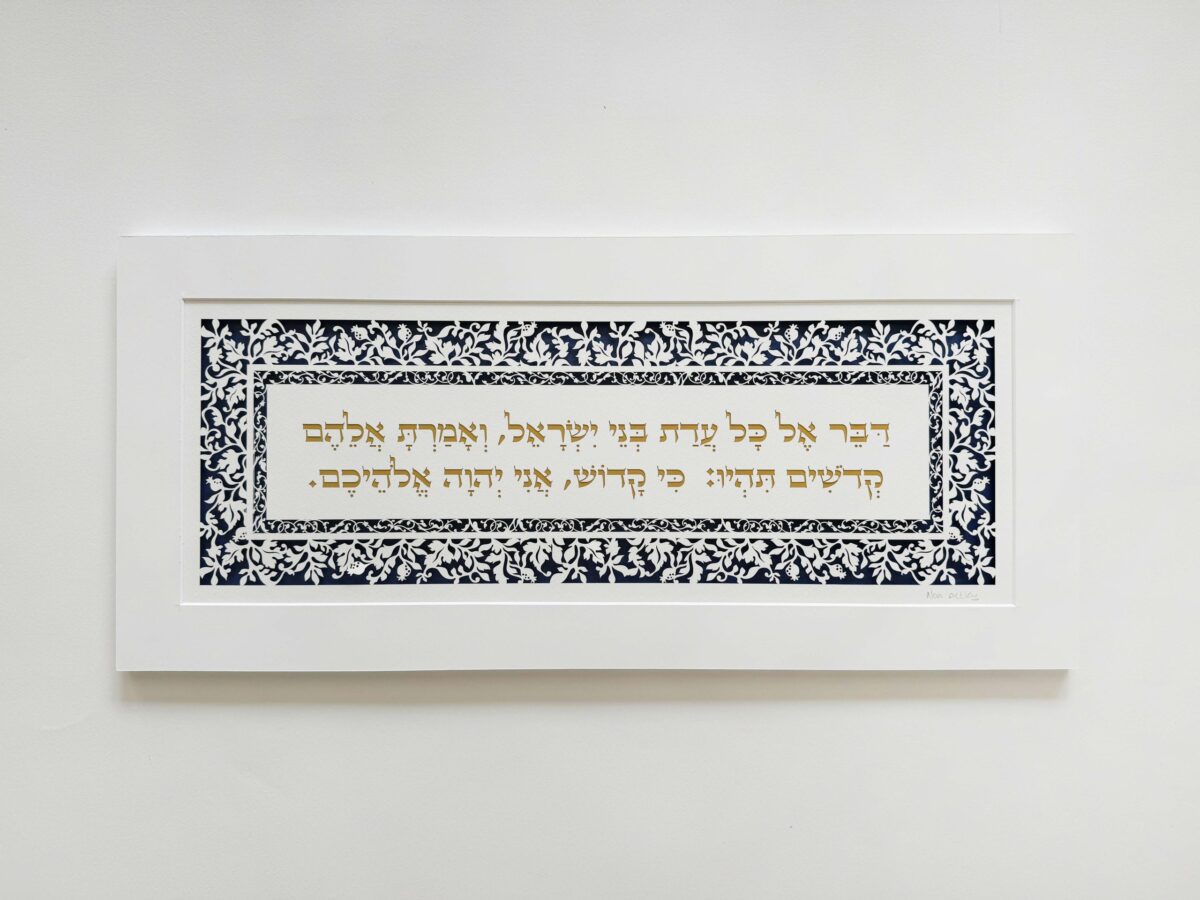 דַּבֵּר אֶל כָּל עֲדַת בְּנֵי יִשְׂרָאֵל, וְאָמַרְתָּ אֲלֵהֶם
קְדֹשִׁים תִּהְיוּ: כִּי קָדוֹשׁ, אֲנִי יְהוָה אֱלֹהֵיכֶם.